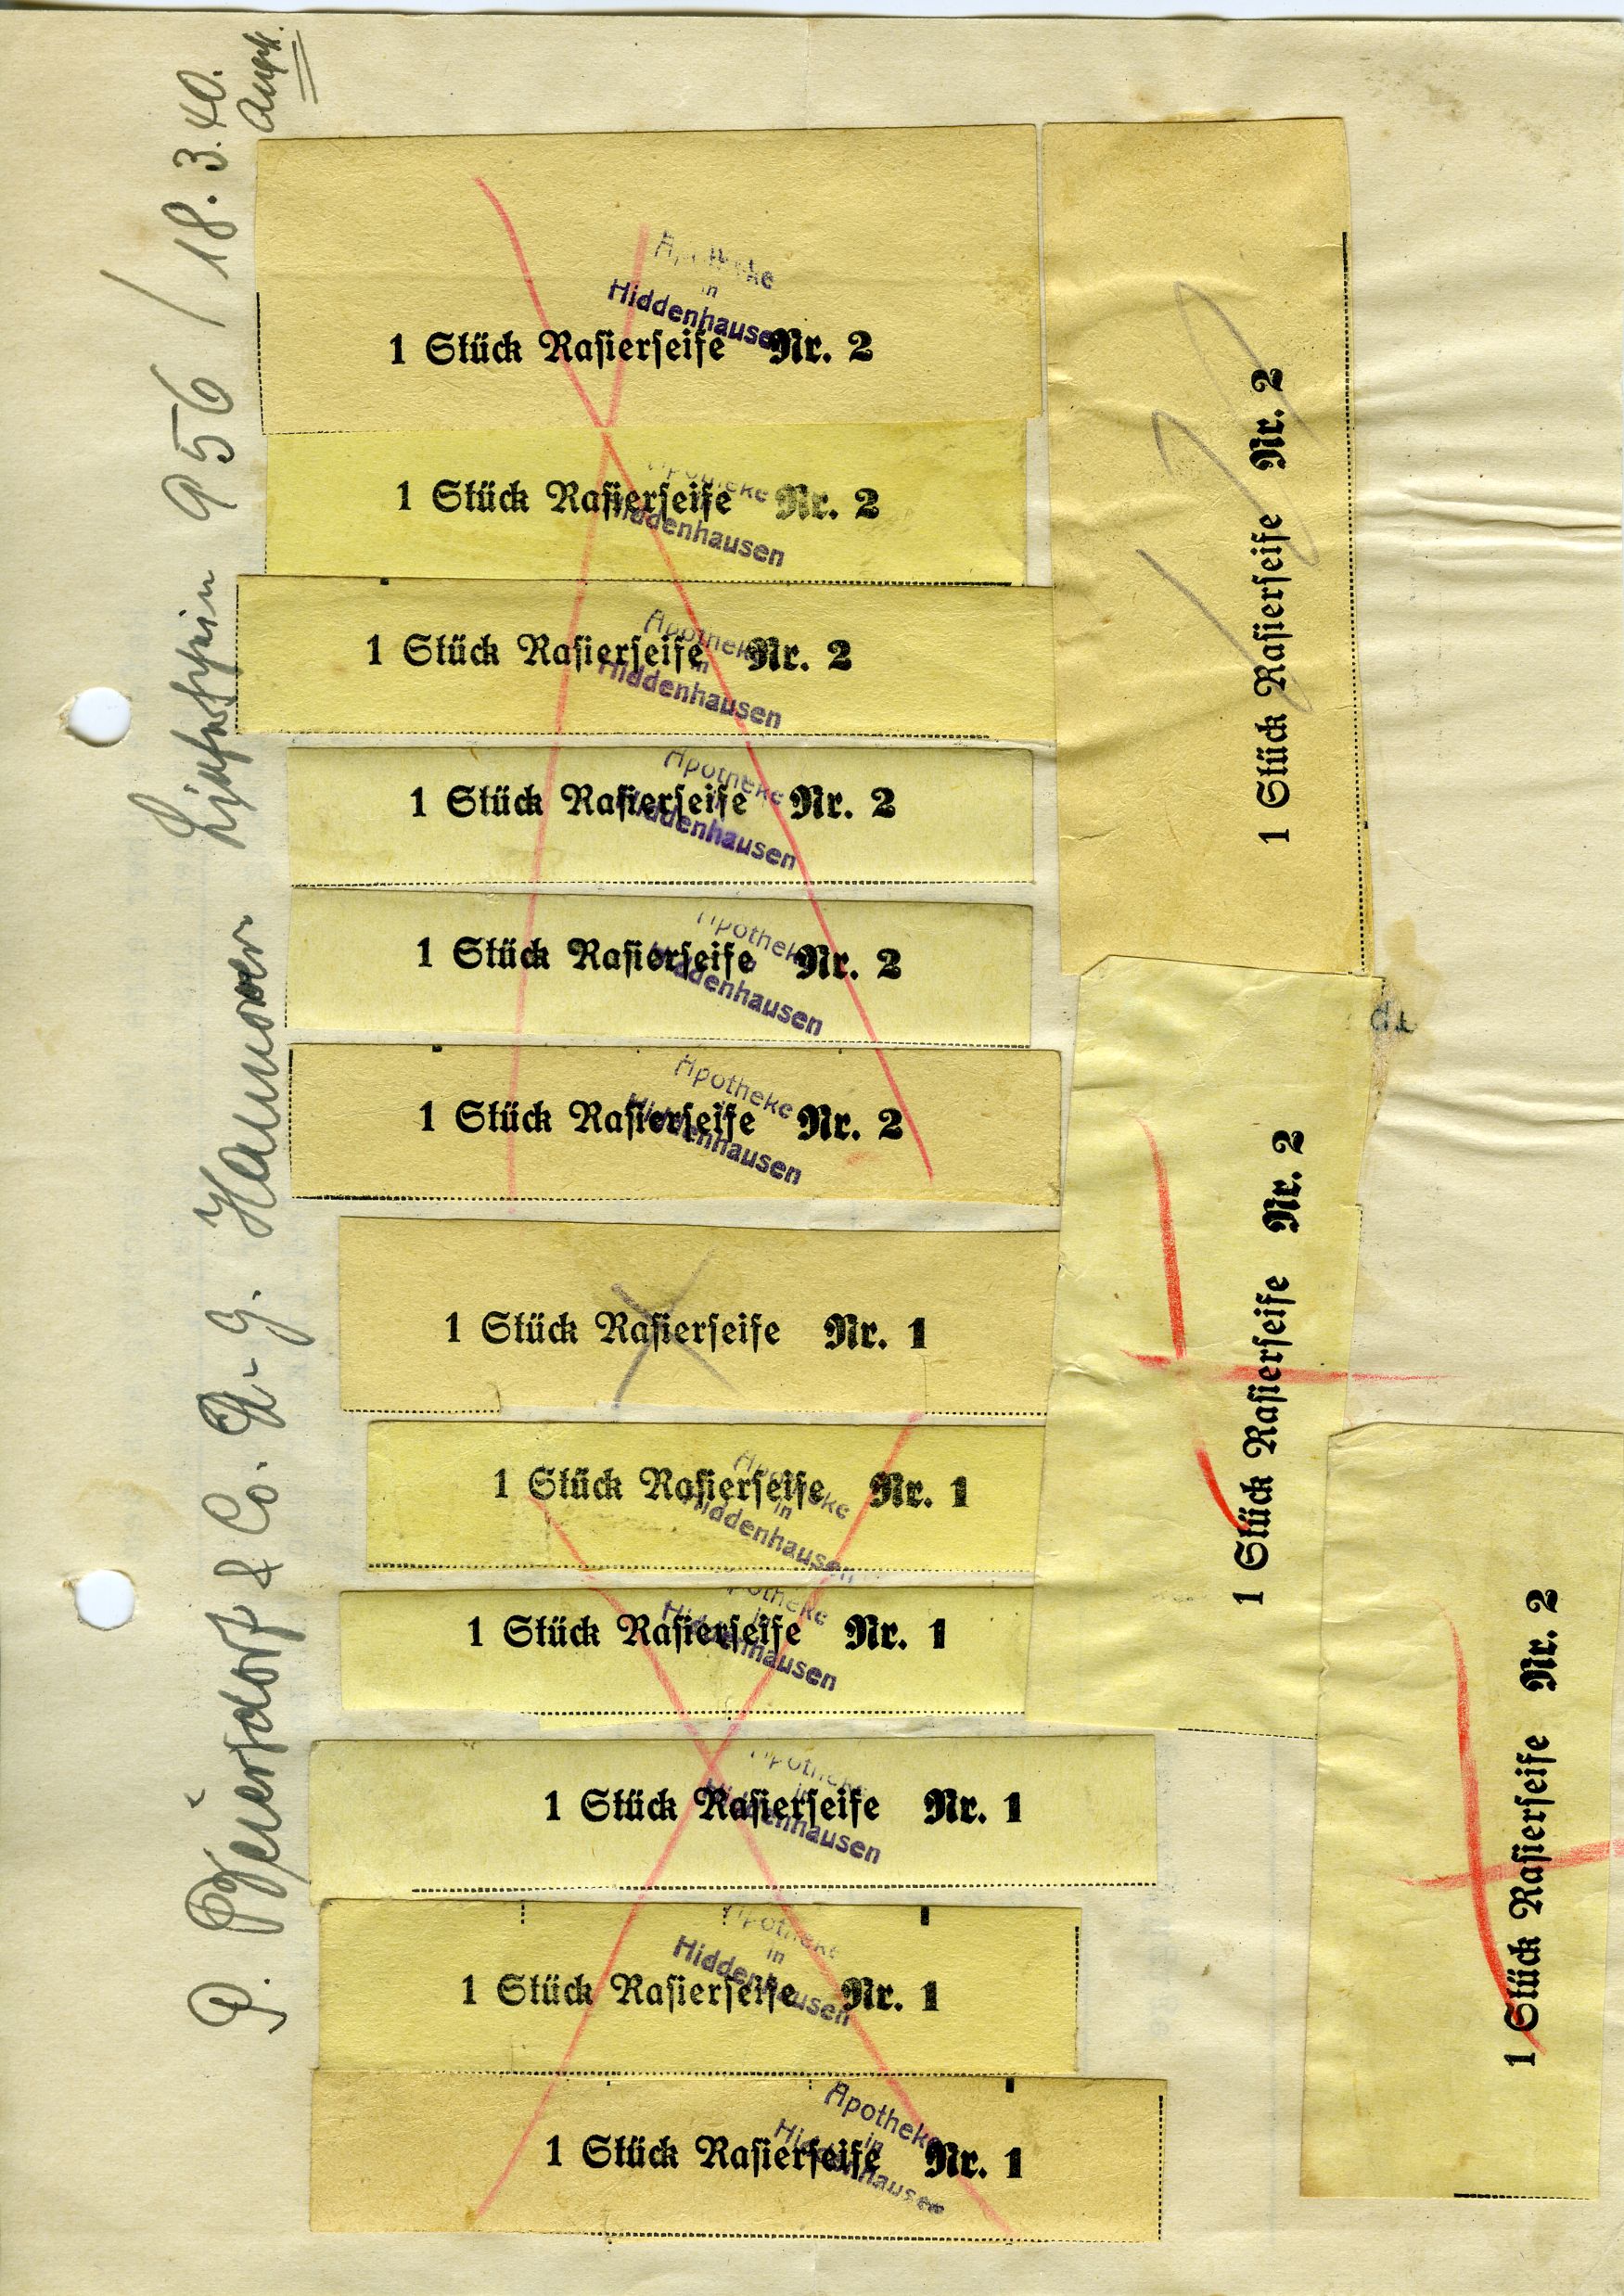 P. Beiersdorf & Co. A-G. Hamburg Lieferschein 956 / 18.3.40.
Apotheke
in
Hiddenhausen
1 Stück Rasierseife Nr. 2
Apotheke
Hiddenhausen
1 Stück Rasierseife Nr. 2
Apotheke
in
Hiddenhausen
1 Stück Rasierseife Nr. 2
Apotheke
Hiddenhausen
1 Stück Rasierseife Nr. 2
Apotheke
Hiddenhausen
1 Stück Rasierseife Nr. 2
Apotheke
Hiddenhausen
1 Stück Rasierseife Nr. 2
1 Stück Rasierseife Nr. 1
Apotheke
in
Hiddenhausen
1 Stück Rasierseife Nr. 1
Apotheke
in
Hiddenhausen
1 Stück Rasierseife Nr. 1
Apotheke
in
Hiddenhausen
1 Stück Rasierseife Nr. 1
Apotheke
in
Hiddenhausen
1 Stück Rasierseife Nr. 1
Apotheke
in
Hiddenhausen
1 Stück Rasierseife Nr. 1
1 Stück Rasierseife Nr. 2
1 Stück Rasierseife Nr. 2
1 Stück Rasierseife Nr. 2